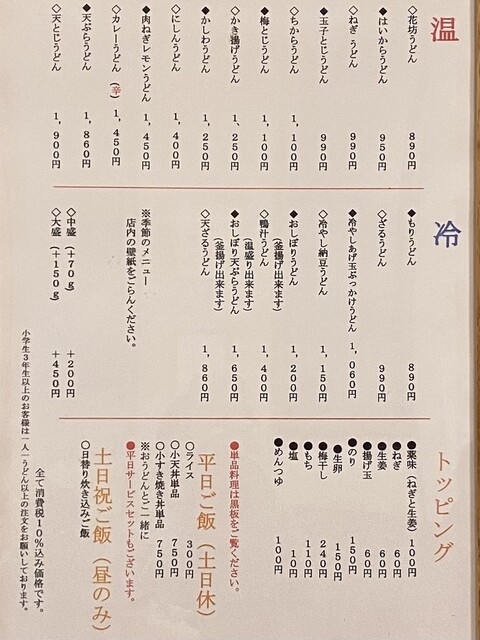 温
◇花坊うどん 890円
◆はいからうどん 950円
◇ねぎ うどん 990円
◆玉子とじうどん 990円
◇ちからうどん 1,100円
◆梅とじうどん 1,100円
◇かき揚げうどん 1,250円
◆かしわうどん 1,250円
◇にしんうどん 1,400円
◆肉ねぎレモンうどん 1,450円
◇カレーうどん (辛) 1,450円
◆天ぷらうどん 1,860円
◇天とじうどん 1,900円
冷
◆もりうどん 890円
◇ざるうどん 990円
◆冷やしあげ玉ぶっかけうどん 1,060円
◇冷やし納豆うどん 1,150円
◆おしぼりうどん 1,200円
(釜揚げ出来ます)
◇鴨汁うどん 1,400円
(温盛り出来ます)
◆おしぼり天ぷらうどん 1,650円
(釜揚げ出来ます)
◇天ざるうどん 1,860円
※季節のメニュー
店内の壁紙をごらんください。
◇中盛(+70g) +200円
◇大盛(+150g) +450円
トッピング
●薬味(ねぎと生姜) 100円
●ねぎ 60円
●生姜 60円
●揚げ玉 60円
●のり 150円
●生卵 150円
●梅干し 240円
●もち 110円
●塩 10円
●めんつゆ 100円
●単品料理は黒板をご覧ください。
平日ご飯(土日休)
○ライス 300円
○小天丼単品 750円
○小すき焼き丼単品 750円
※おうどんとご一緒に
●平日サービスセットもございます。
土日祝ご飯(昼のみ)
○日替り炊き込みご飯
全て消費税10%込み価格です。
小学生3年生以上のお客様は一人一うどん以上の注文をお願いしております。